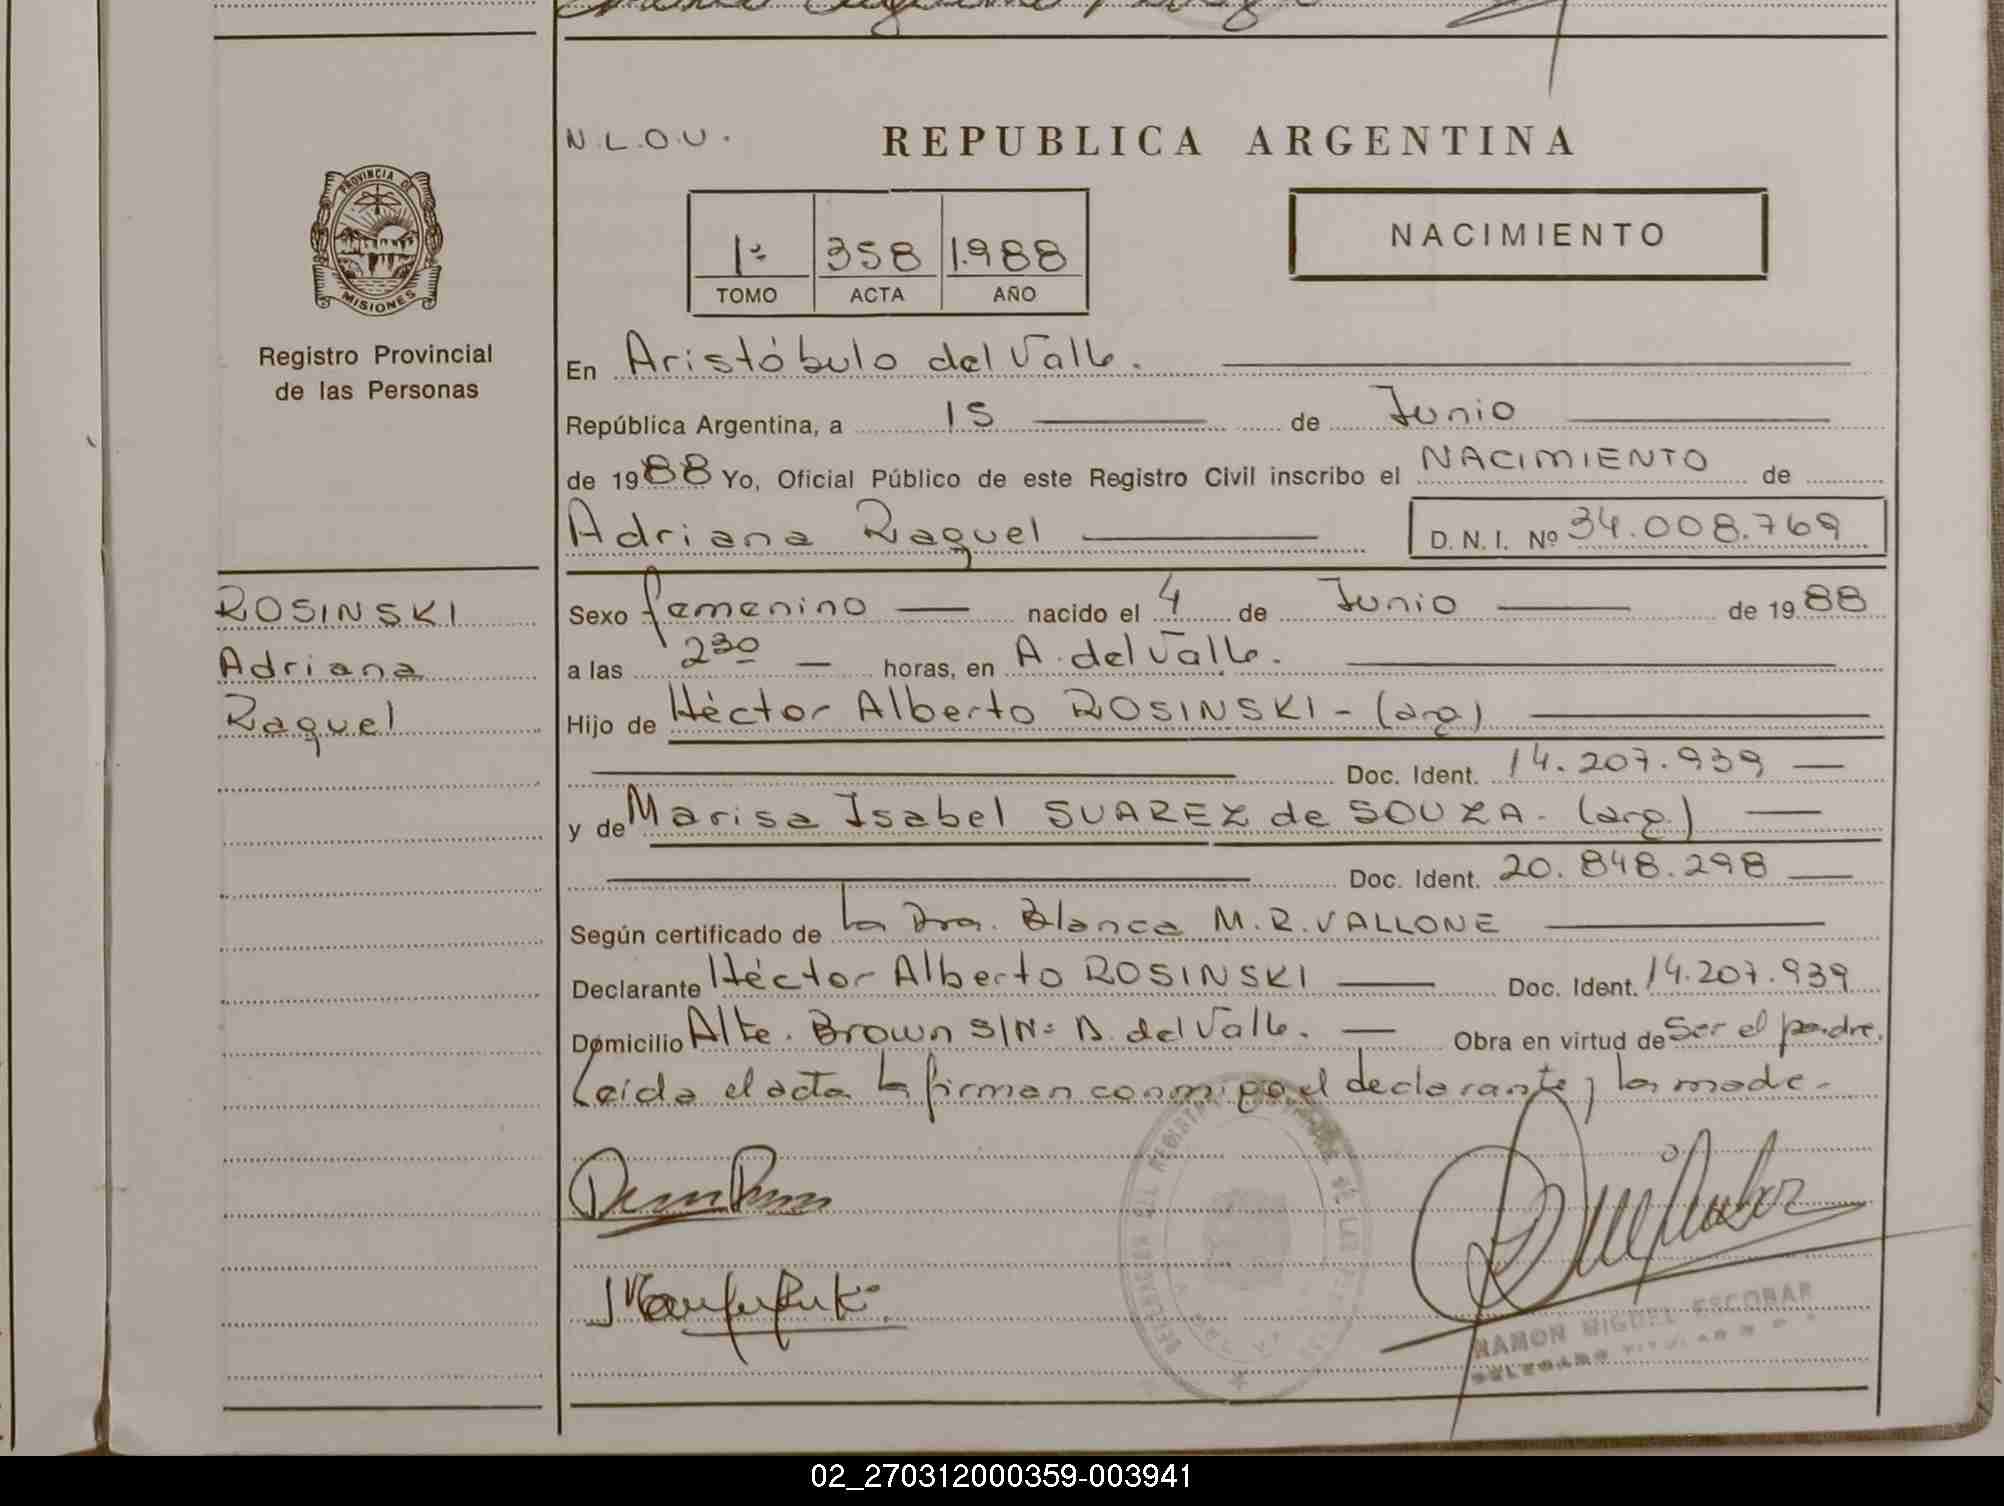 N.L.O.U.
REPUBLICA ARGENTINA
1º 358 1.988
TOMO ACTA AÑO
NACIMIENTO
PROVINCIA DE MISIONES
Registro Provincial
de las Personas
En Aristóbulo del Valle.
República Argentina, a 15 de Junio
de 1988 Yo, Oficial Público de este Registro Civil inscribo el NACIMIENTO de
Adriana Raquel D. N. I. Nº 34.008.769
ROSINSKI
Adriana
Raquel
Sexo femenino nacido el 4 de Junio de 1988
a las 2 30 horas, en A. del Valle.
Hijo de Héctor Alberto ROSINSKI - (arg)
Doc. Ident. 14.207.939
y de Marisa Isabel SUAREZ de SOUZA. (arg)
Doc. Ident. 20.848.298
Según certificado de la Dra. Blanca M.R. VALLONE
Declarante Héctor Alberto ROSINSKI Doc. Ident. 14.207.939
Domicilio Alte. Brown S/Nº A. del Valle. Obra en virtud de Ser el padre.
Leída el acta la firman conmigo el declarante y la madre-
RAMON MIGUEL ESCOBAR
DELEGADO TITULAR
02_270312000359-003941